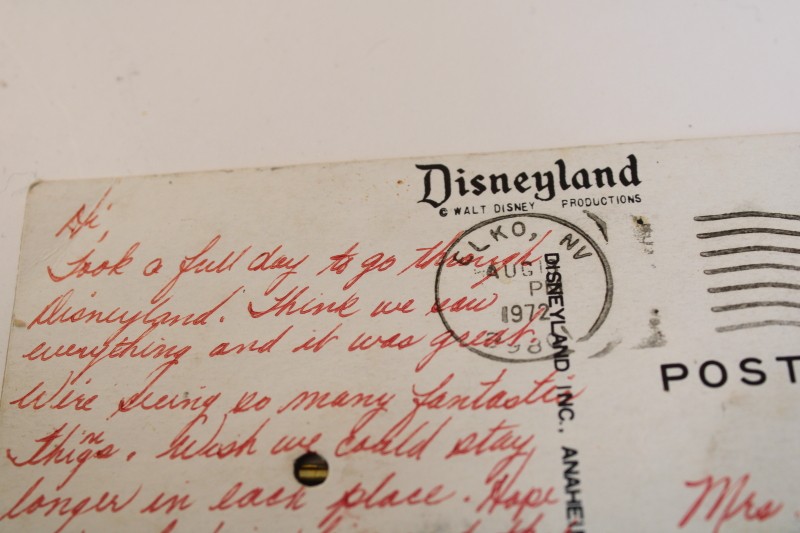 Disneyland
© WALT DISNEY PRODUCTIONS
ELKO, NV
AUG
P
1972
898
DISNEYLAND INC., ANAHEI
POST
Hi,
Took a full day to go through
Disneyland. Think we saw
everything and it was great.
We're seeing so many fantastic
thigs. Wish we could stay
n
longer in each place. Hope
Mrs.